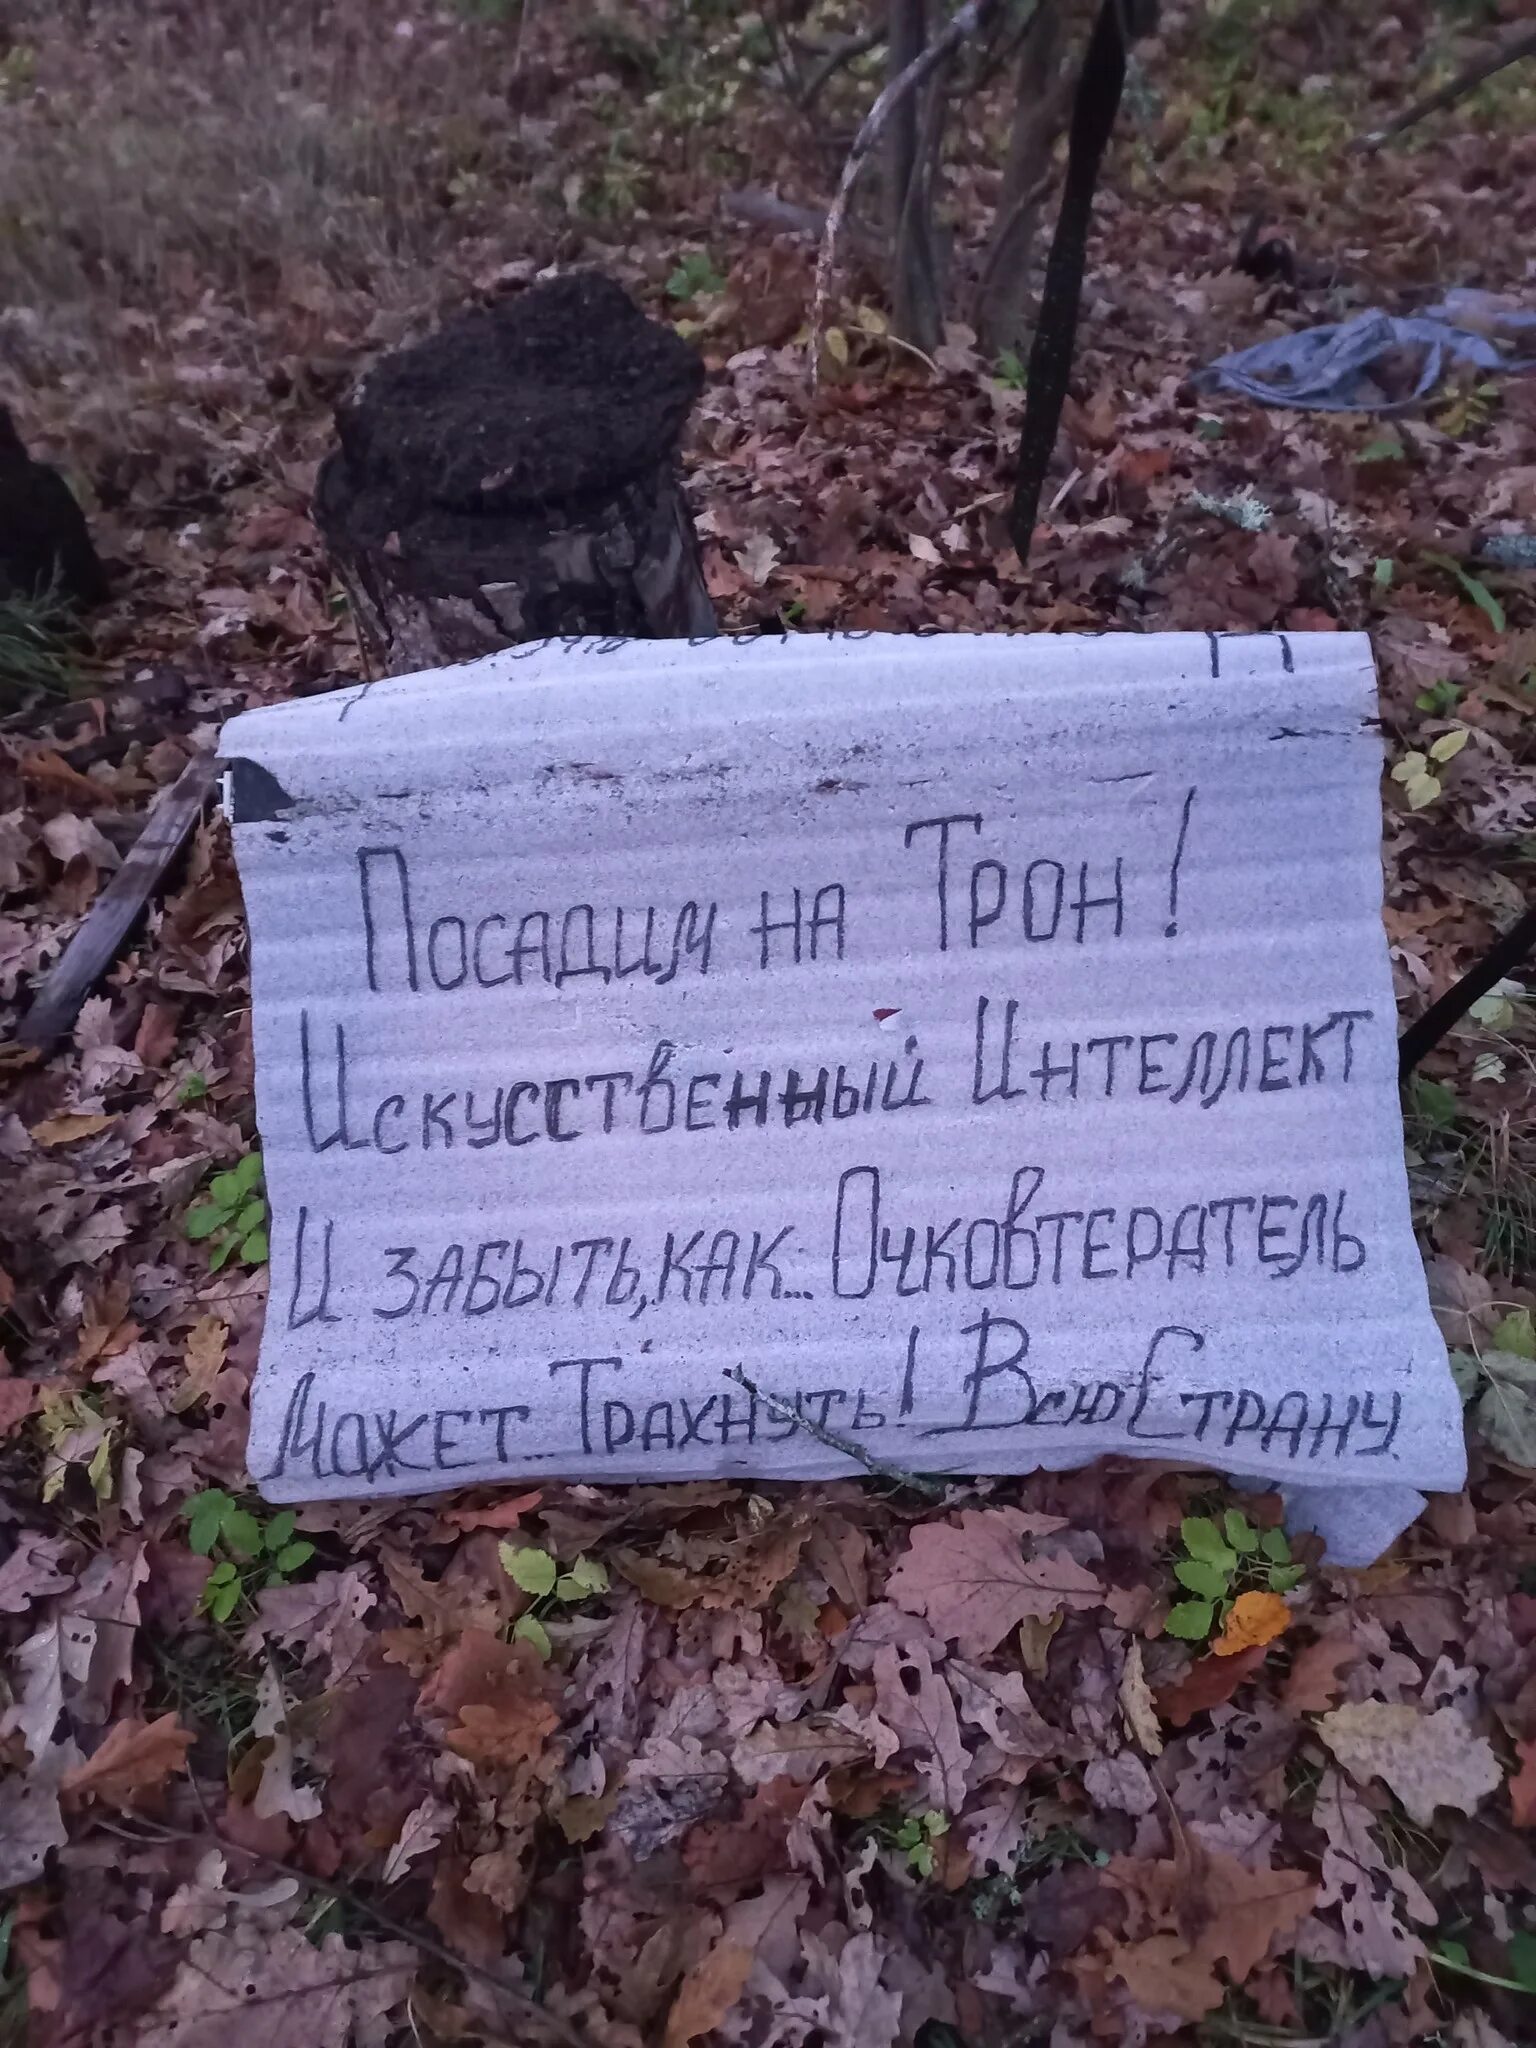 Посадим на Трон!
Искусственный Интеллект
И забыть, как... Очковтератель
может... Трахнуть! Всю Страну.